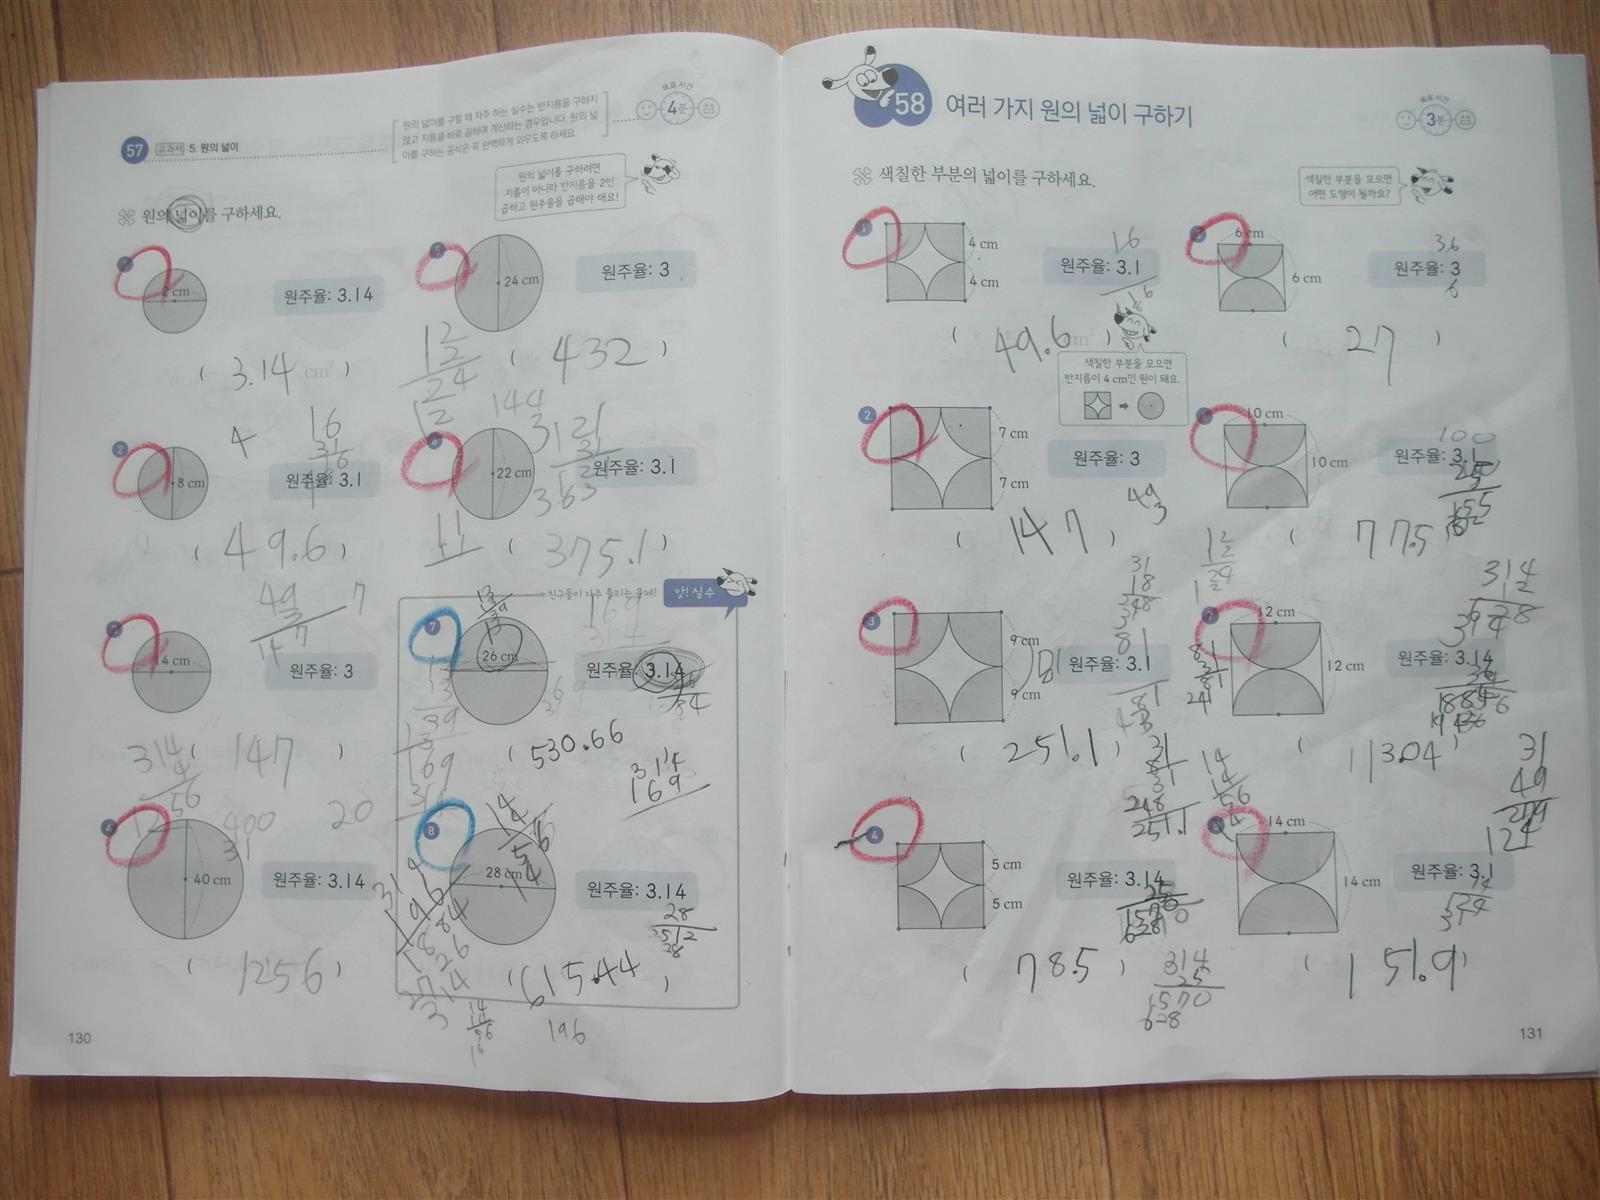 57 교과서 5. 원의 넓이
원의 넓이를 구할 때 자주 하는 실수는 반지름을 구하지
않고 지름을 바로 곱하여 계산하는 경우입니다. 원의 넓
이를 구하는 공식은 꼭 완벽하게 외우도록 하세요.
목표 시간
4분
원의 넓이를 구하려면
지름이 아니라 반지름을 2번
곱하고 원주율을 곱해야 해요!
원의 넓이를 구하세요.
1
2 cm
원주율: 3.14
( 3.14 cm² )
5
24 cm
원주율: 3
12
2
24
12
144
3
( 432 )
2
8 cm
4
16
원주율: 3.1
( 49.6 )
6
22 cm
121
원주율: 3.1
363
11
( 375.1 )
3
14 cm
49
3
147
7
원주율: 3
( 147 )
친구들이 자주 틀리는 문제!
앗! 실수
7
26 cm
원주율: 3.14
( 530.66
169
314
4
40 cm
400
20
원주율: 3.14
( 1256 )
8
28 cm
원주율: 3.14
( 615.44 )
196
130
58 여러 가지 원의 넓이 구하기
목표 시간
3분
색칠한 부분의 넓이를 구하세요.
색칠한 부분을 모으면
어떤 도형이 될까요?
1
4 cm
4 cm
16
원주율: 3.1
( 49.6 )
색칠한 부분을 모으면
반지름이 4 cm인 원이 돼요.
5
6 cm
6 cm
36
원주율: 3
( 27 )
2
7 cm
7 cm
원주율: 3
49
3
( 147 )
6
10 cm
10 cm
100
원주율: 3.1
( 77.5 )
3
9 cm
9 cm
원주율: 3.1
81
( 251.1 )
7
12 cm
12 cm
원주율: 3.14
( 113.04 )
4
5 cm
5 cm
원주율: 3.14
( 78.5 )
314
25
1570
628
8
14 cm
14 cm
원주율: 3.1
31
49
279
124
( 151.9 )
131